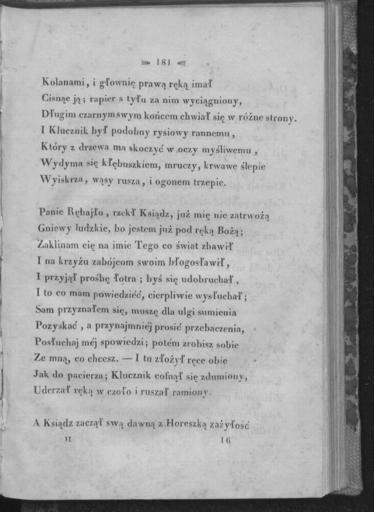 181
Kolanami, i głownię prawą ręką imał
Cisnąc ją; rapier s tyłu za nim wyciągniony,
Długim czarnym swym końcem chwiał się w różne strony.
I Klucznik był podobny rysiowy rannemu,
Który z drzewa ma skoczyć w oczy myśliwemu,
Wydyma się kłębuszkiem, mruczy, krwawe ślepie
Wyiskrza, wąsy rusza, i ogonem trzepie.
Panie Rębajło, rzekł Ksiądz, już mię nie zatrwożą
Gniewy ludzkie, bo jestem już pod ręką Bożą;
Zaklinam cię na imie Tego co świat zbawił
I na krzyżu zabójcom swoim błogosławił,
I przyjął prośbę łotra; byś się udobruchał,
I to co mam powiedziéć, cierpliwie wysłuchał;
Sam przyznałem się, muszę dla ulgi sumienia
Pozyskać, a przynajmniéj prosić przebaczenia,
Posłuchaj méj spowiedzi; potém zrobisz sobie
Ze mną, co chcesz. — I tu złożył ręce obie
Jak do pacierza; Klucznik cofnął się zdumiony,
Uderzał ręką w czoło i ruszał ramiony.
A Ksiądz zaczął swą dawną z Horeszką zażyłość
II 16